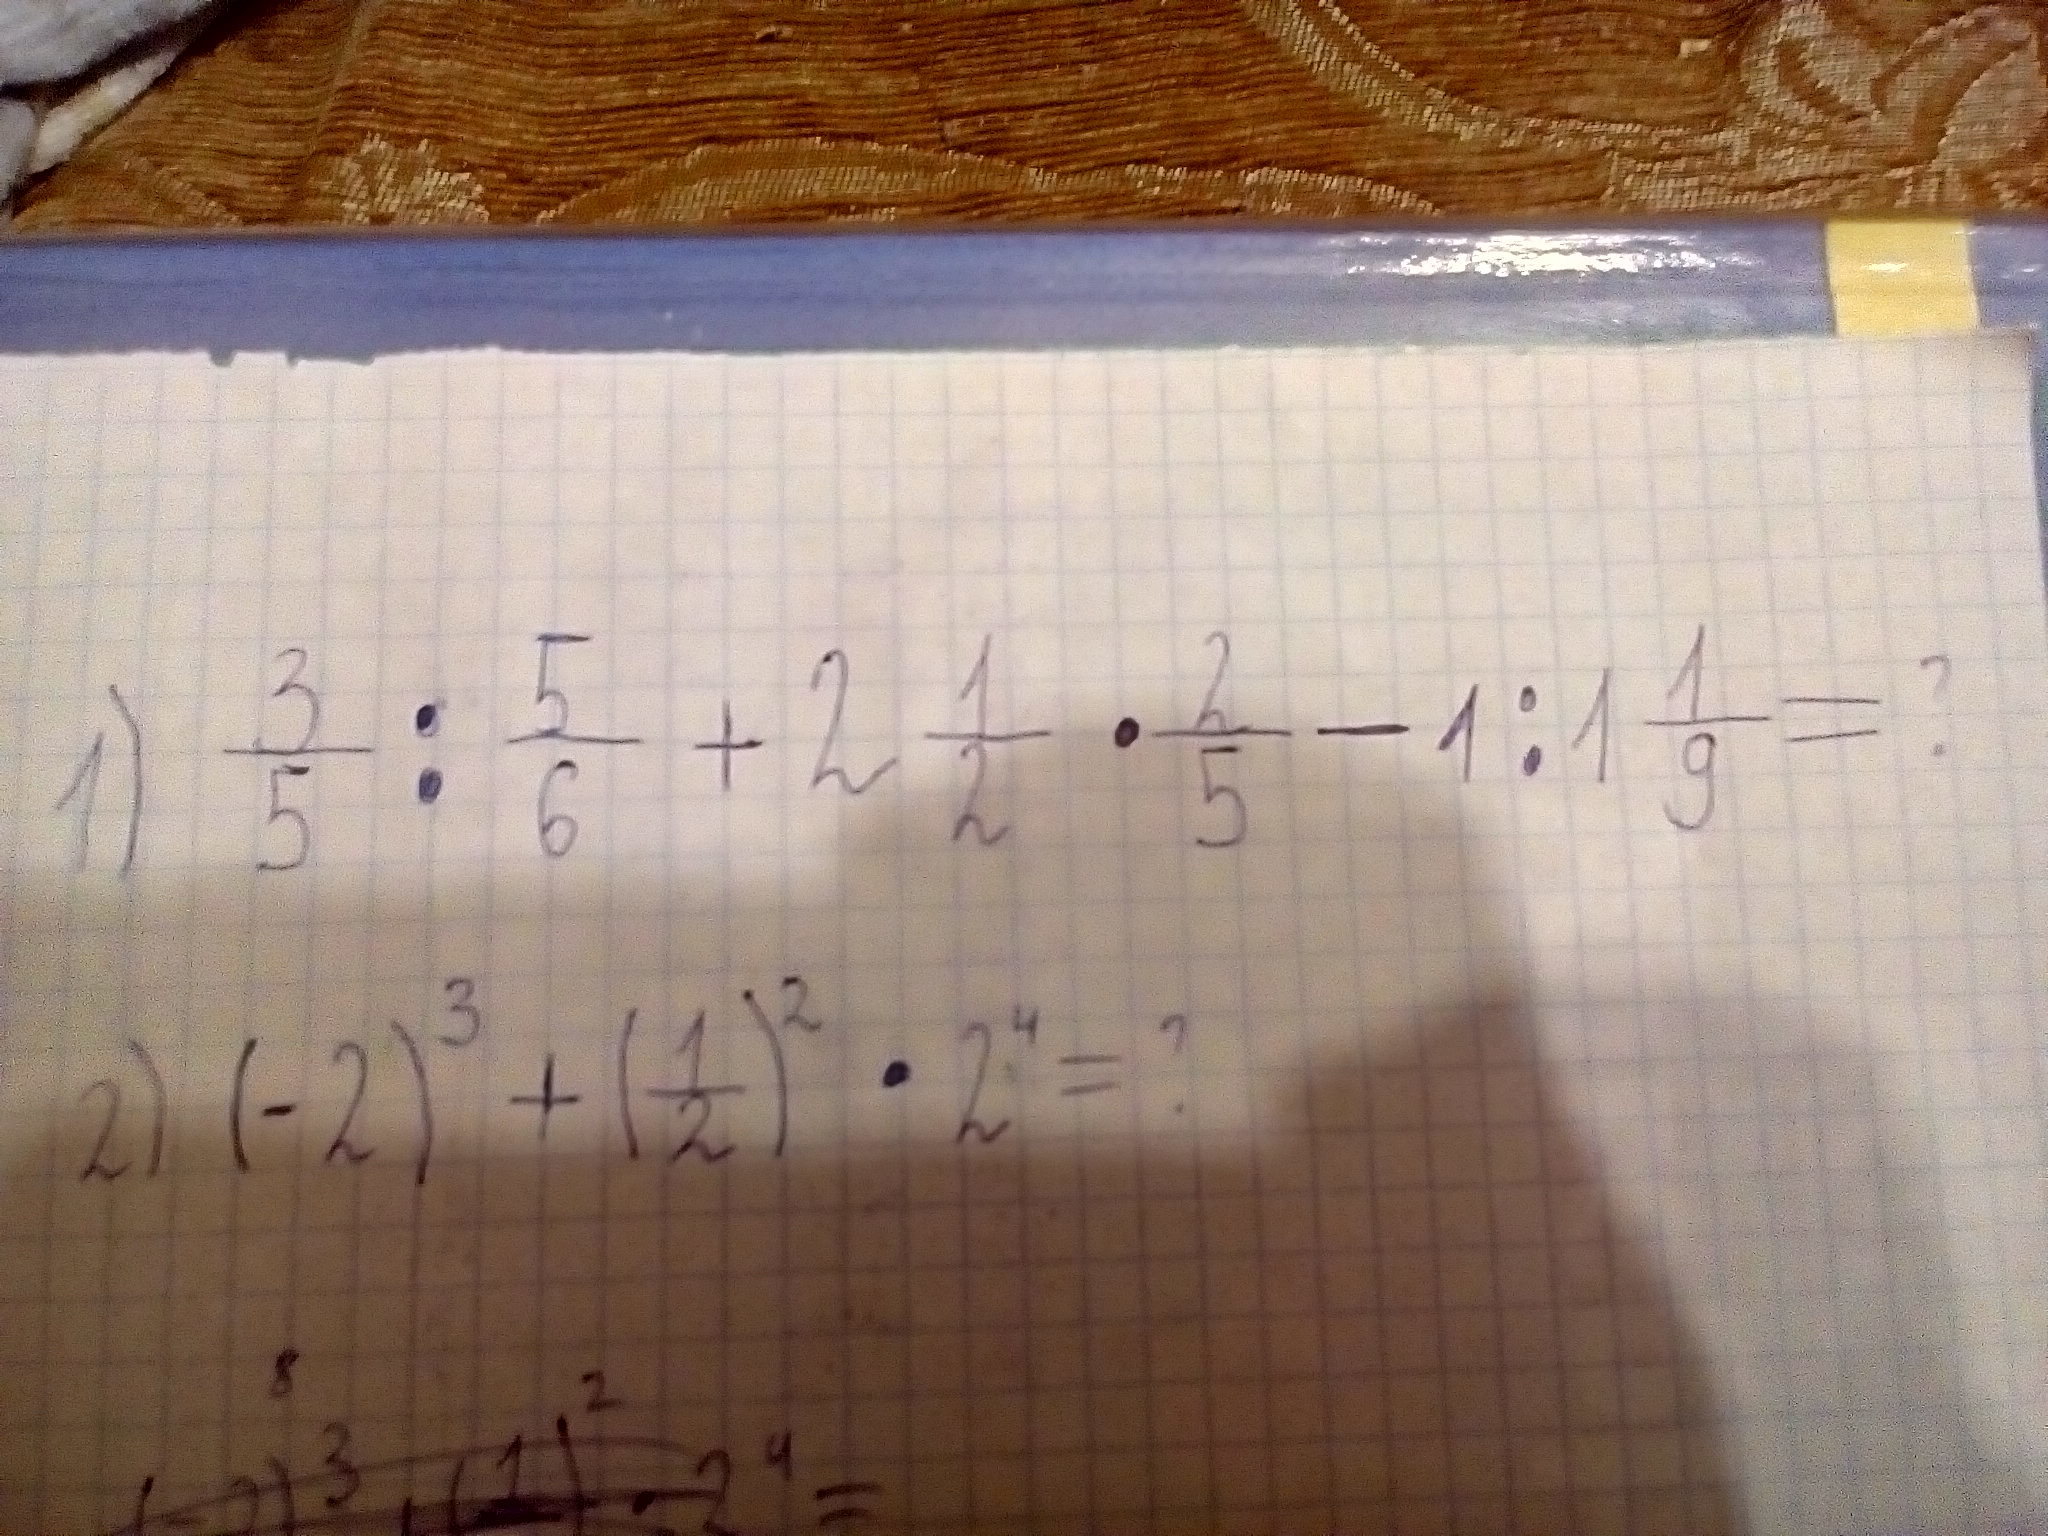 1) 3/5 : 5/6 + 2 1/2 · 2/5 − 1 : 1 1/9 = ?
2) (-2)³ + (1/2)² · 2⁴ = ?
8
(-2)³ + (1/2)² · 2⁴ =